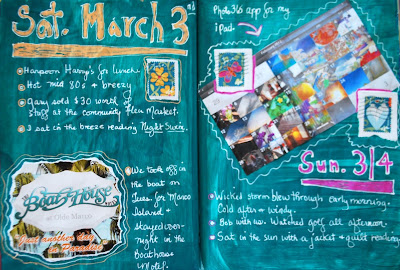 Sat. March 3rd
Harpoon Harry's for lunch.
Hot mid 80's + breezy
Gary sold $30 worth of
stuff at the community Flea Market.
I sat in the breeze reading Night Swim.
The
Boat House
at Olde Marco
Just another day
in Paradise
We took off in
the boat on
Tues. for Marco
Island &
stayed over-
night in the
Boathouse
Motel.
Photo 365 app for my
iPad.
Sun. 3/4
Wicked storm blew through early morning.
Cold after & windy.
Bob with us. Watched golf all afternoon.
Sat in the sun with a jacket & quilt reading.